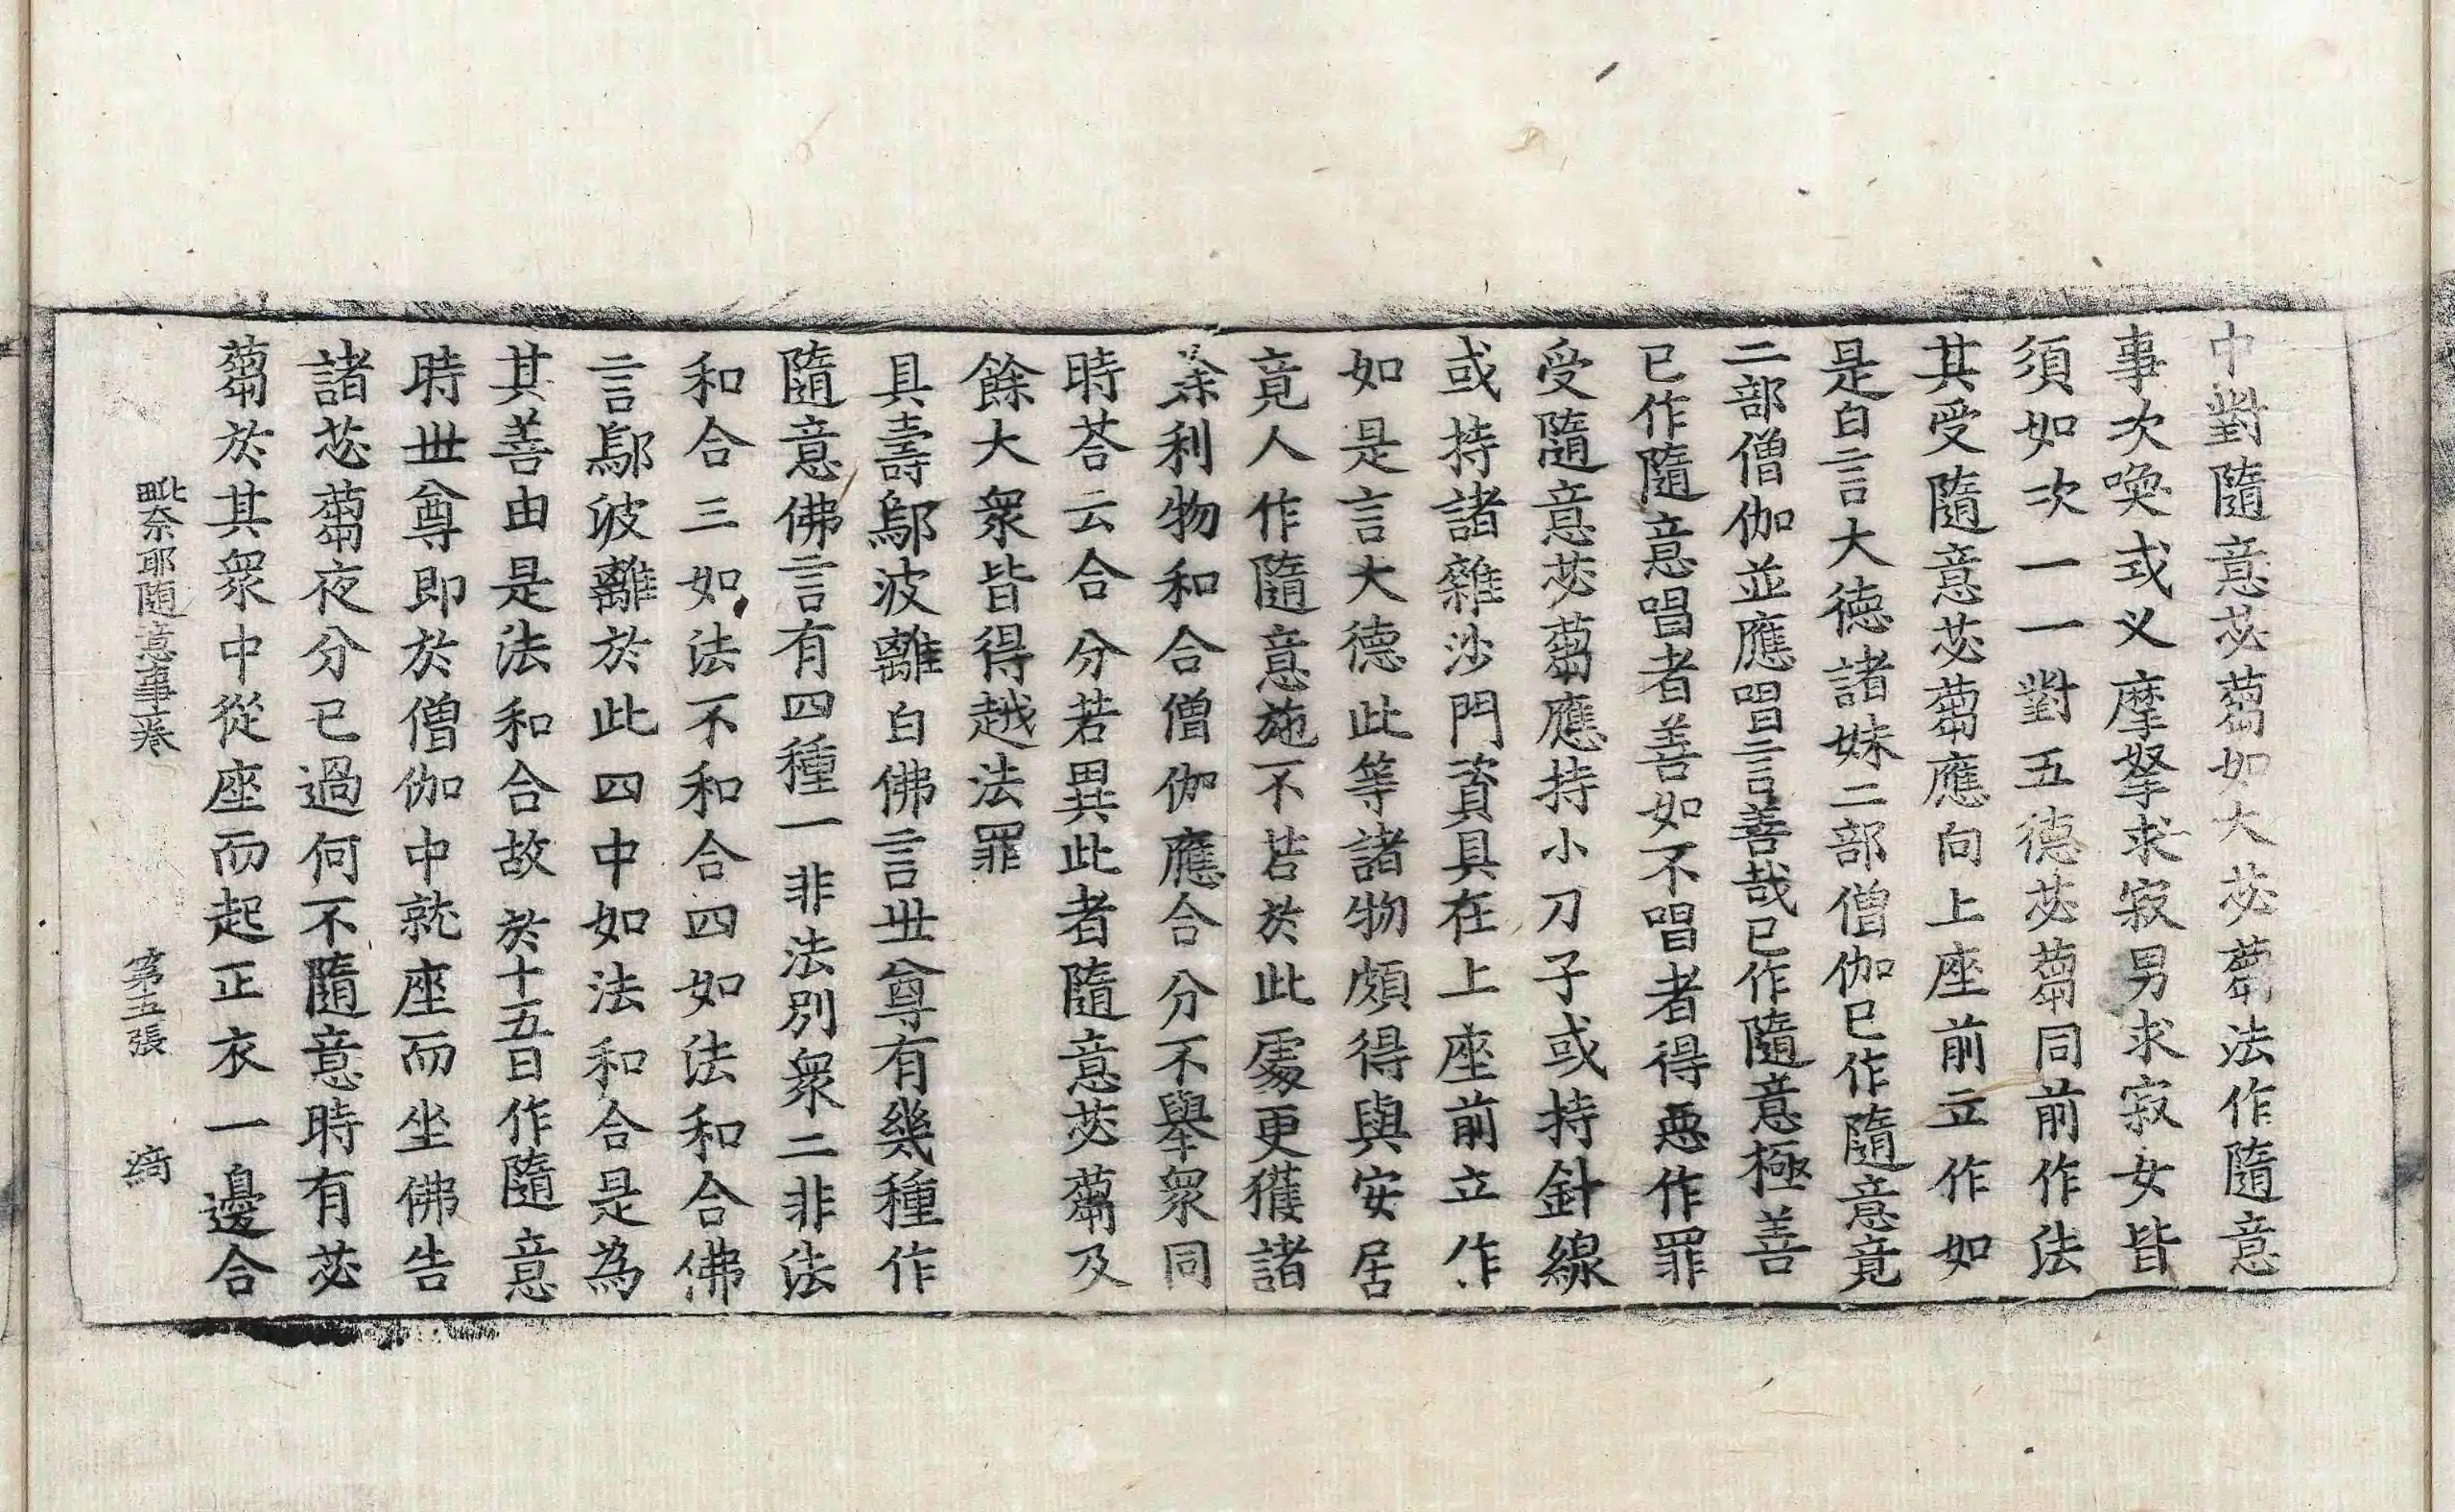 中對隨意苾蒭如大苾蒭法作隨意
事次喚式叉摩拏求寂男求寂女皆
須如次一一對五德苾蒭同前作法
其受隨意苾蒭應向上座前立作如
是白言大德諸妹二部僧伽已作隨意竟
二部僧伽並應唱言善哉已作隨意極善
已作隨意唱者善如不唱者得惡作罪
受隨意苾蒭應持小刀子或持針線
或持諸雜沙門資具在上座前立作
如是言大德此等諸物頗得與安居
竟人作隨意施不若於此處更獲諸
餘利物和合僧伽應合分不舉衆同
時荅云合分若異此者隨意苾蒭及
餘大衆皆得越法罪
具壽鄔波離白佛言世尊有幾種作
隨意佛言有四種一非法別衆二非法
和合三如法不和合四如法和合佛
言鄔波離於此四中如法和合是為
其善由是法和合故於十五日作隨意
時世尊即於僧伽中就座而坐佛告
諸苾蒭夜分已過何不隨意時有苾
蒭於其衆中從座而起正衣一邊合
毗奈耶隨意事一卷 第五張